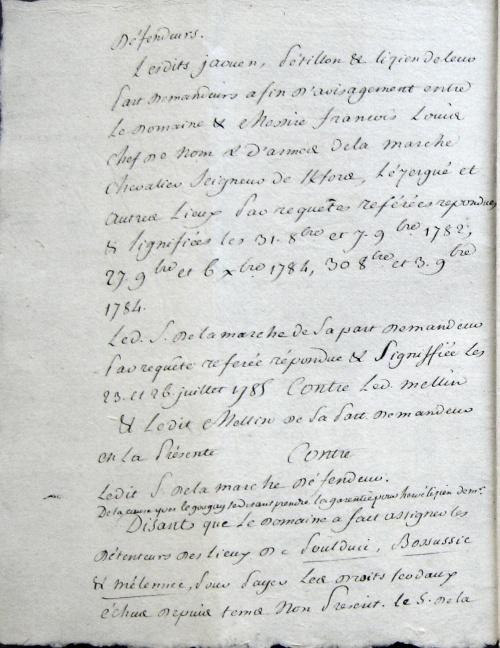 Défendeurs.
Lesdits jaouen, Pétillon & lizien de leur
part Demandeurs afin d'avisagement entre
Le Domaine & Messire françois Louis
chef de nom & d'armes de la marche
chevalier Seigneur de Kfors, Lézergué et
autres Lieux par requetes referées repondues
& signifiées les 31. 8bre et 7. 9bre 1782,
27. 9bre et 6 xbre 1784, 30 8bre et 3. 9bre
1784.
Led. S. De la marche de sa part Demandeur
par requete referée répondue & Signiffiée les
23. et 26. juillet 1785 Contre Led. Mellin
& Ledit Mellin de sa part Demandeur
en La Présente Contre
Ledit S. De la marche Défendeur.
De la cause yves le goazguy se disant prendre la garentie pour hervé lizien de mr.
Disant que Le Domaine a fait assigner les
Détenteurs des Lieux de Poulduic, Bossussic
& mélennec, pour payer Les droits feodaux
échus depuis tems Non Prescrit. le S. de la